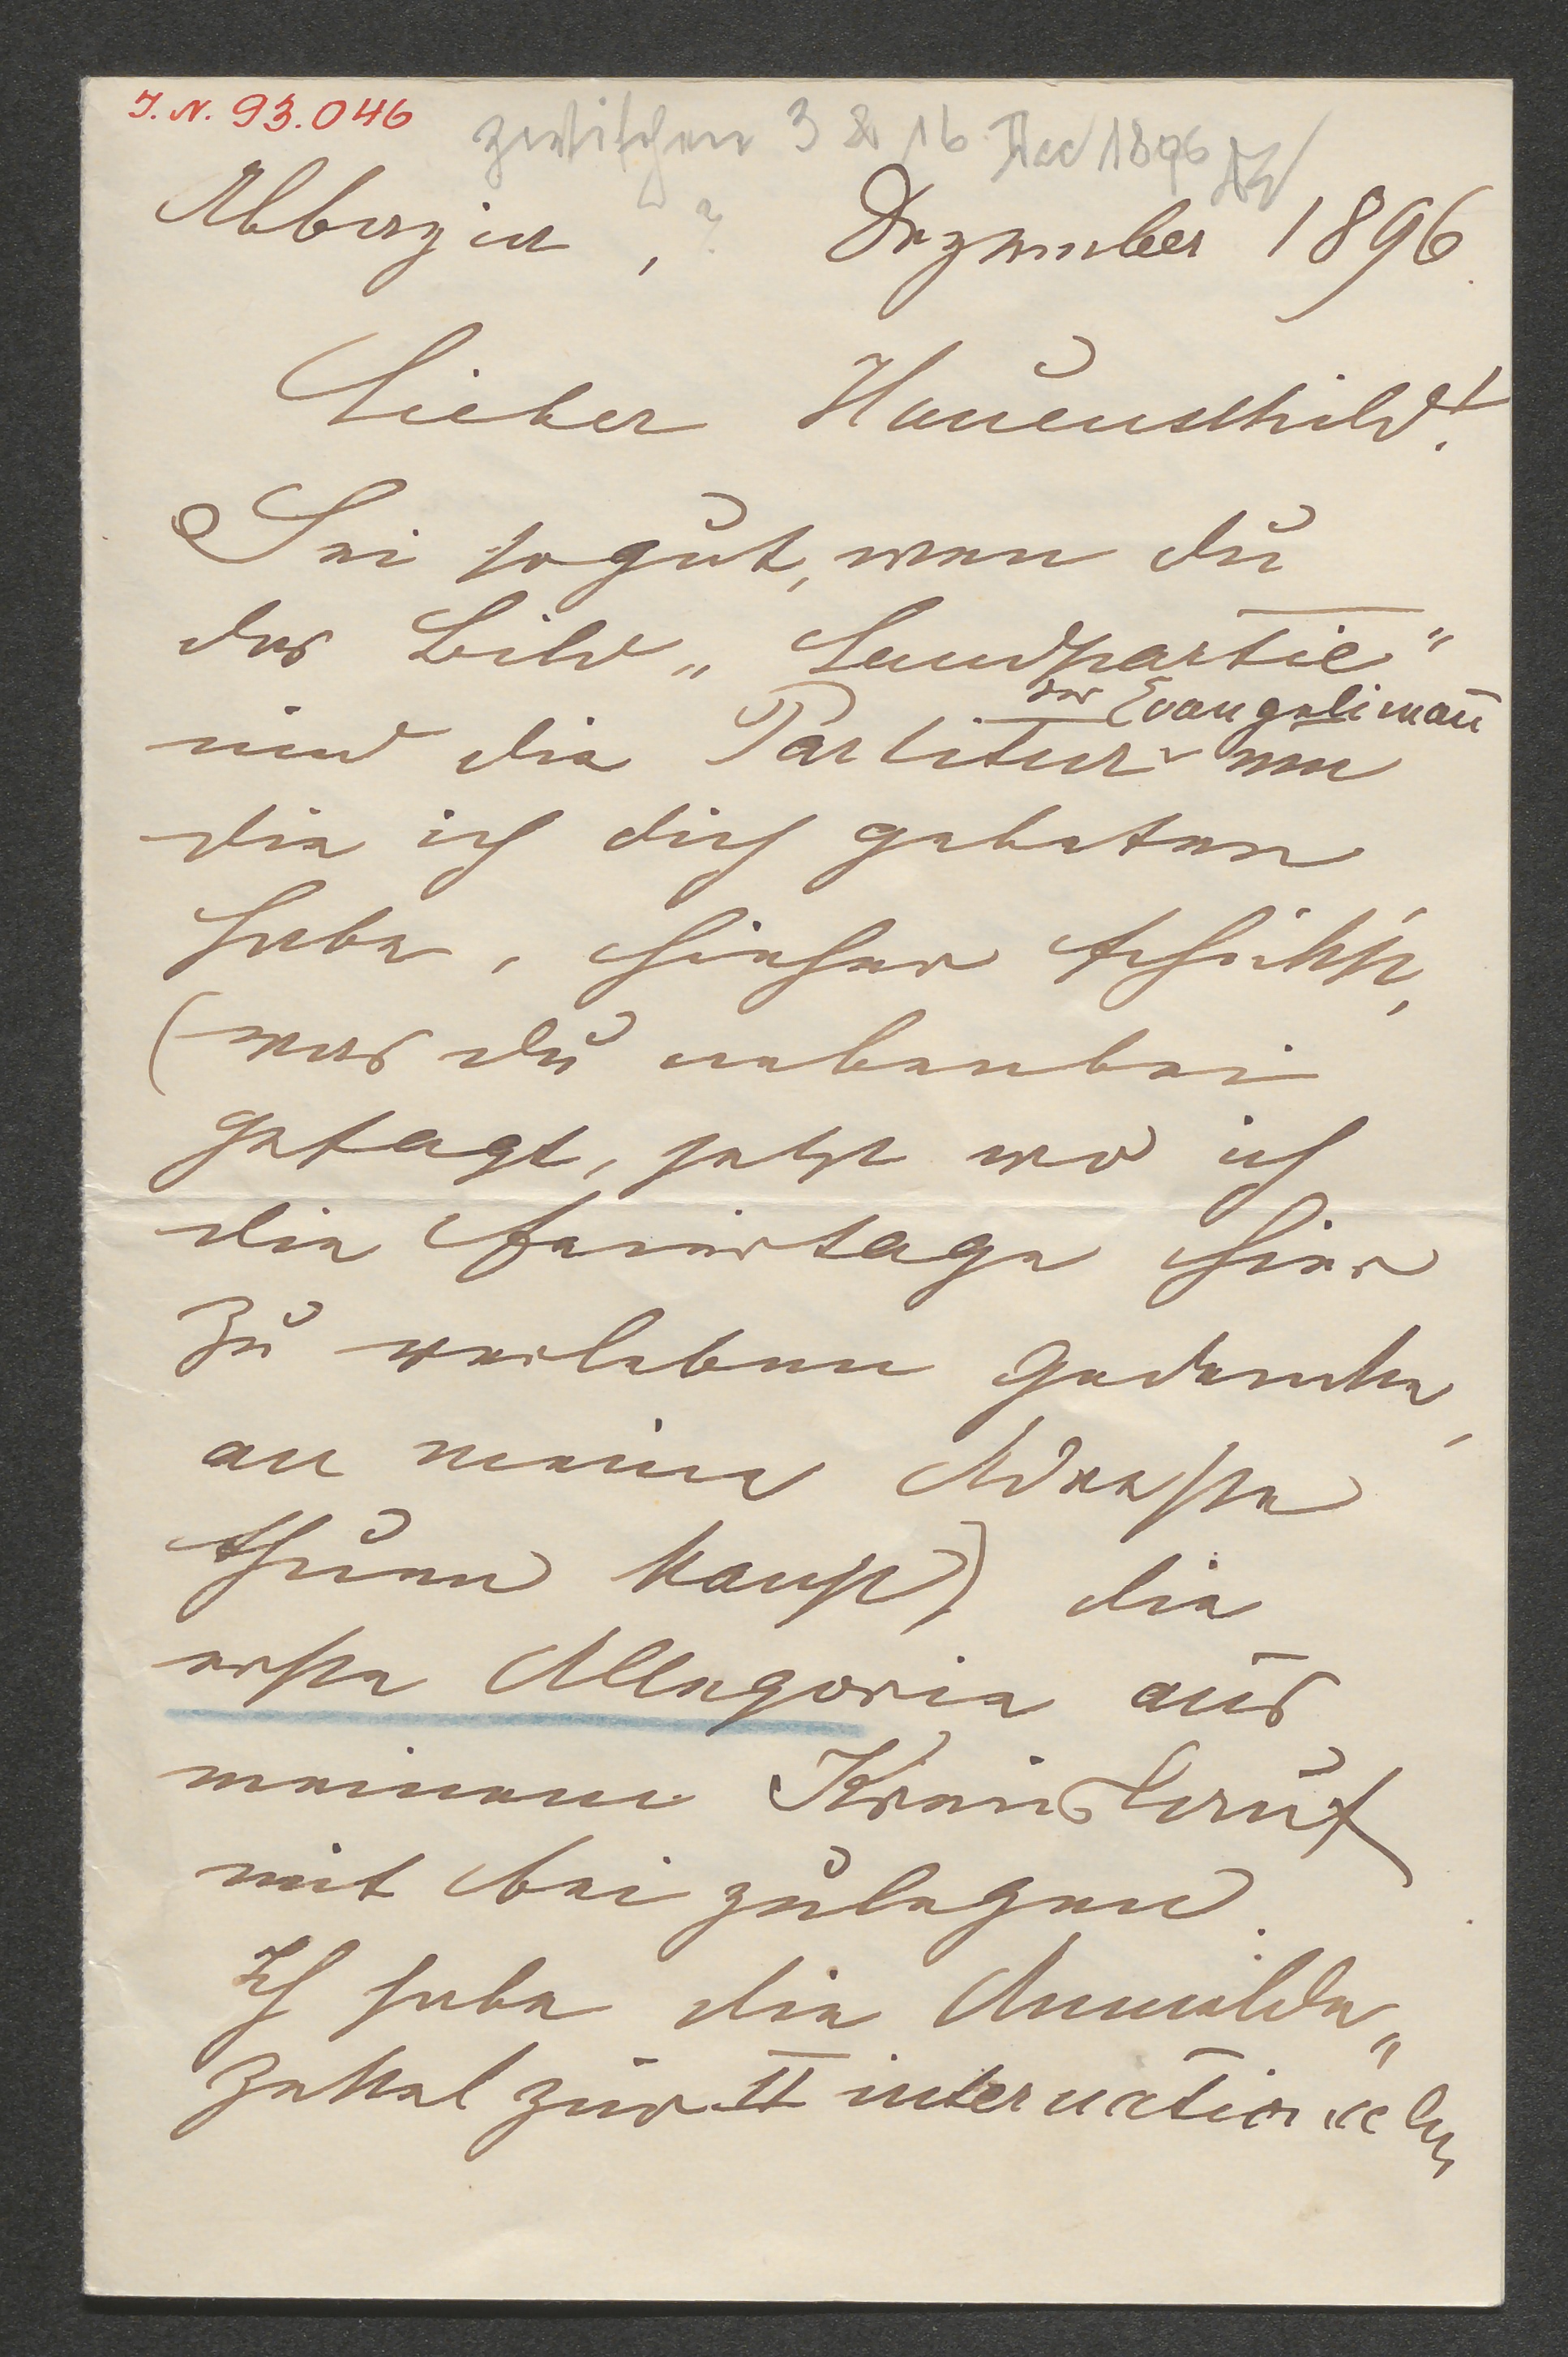 J. N. 93.046
zwischen 3 & 16 Dec 1896
Abbazia, ? Dezember 1896.
Lieber Hauenschild!
Sei so gut, wen du
das Bild „Landpartie"
der Evangelimañ
und die Partitur um
die ich dich gebeten
habe, hieher schickst,
(was du nebenbei
gesagt, jetzt wo ich
die Feiertage hier
zu verleben gedenke,
an meine Adresse
thuen kanst) die
erste Allegorie aus
meinem
mit bei zulegen.
Ich habe die Anmelde„
zettel zur II internationalen